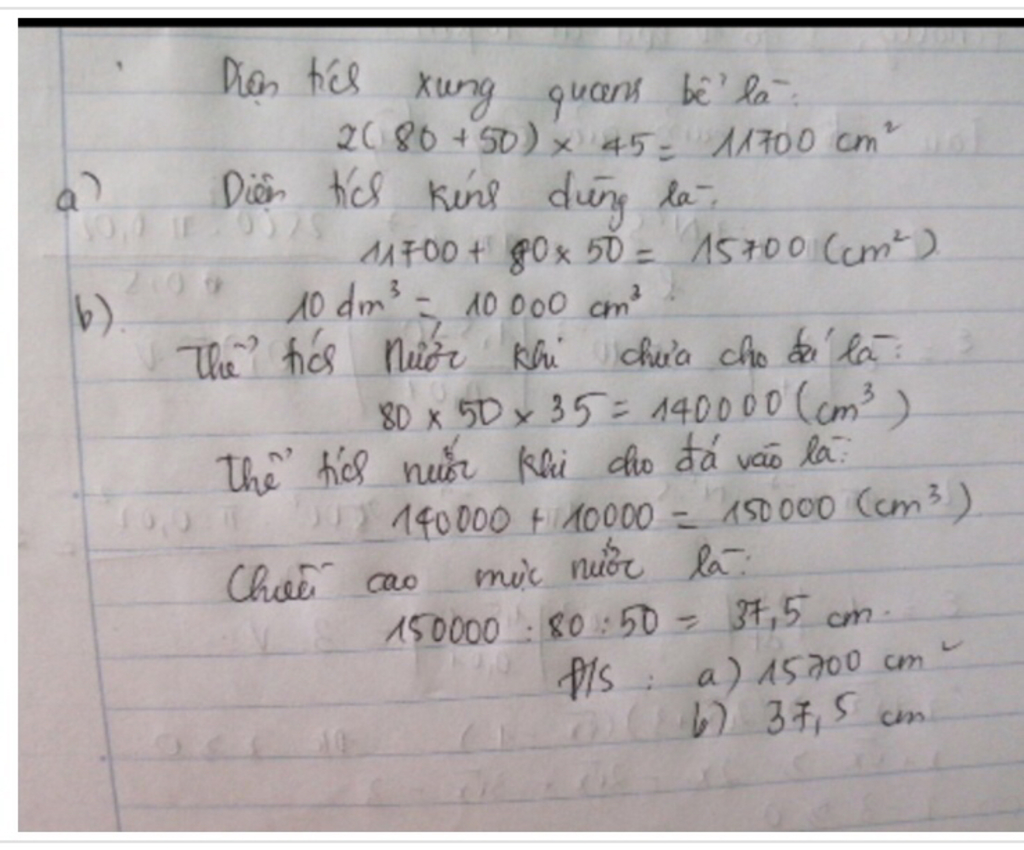 Diện tích xung quanh bể là:
2(80 + 50) x 45 = 11700 cm²
a) Diện tích kính dùng là:
11700 + 80 x 50 = 15700 (cm²)
b) 10 dm³ = 10 000 cm³
Thể tích nước khi chưa cho đá là:
80 x 50 x 35 = 140000 (cm³)
Thể tích nước khi cho đá vào là:
140000 + 10000 = 150000 (cm³)
Chiều cao mực nước là:
150000 : 80 : 50 = 37,5 cm.
Đ/S : a) 15700 cm²
b) 37,5 cm